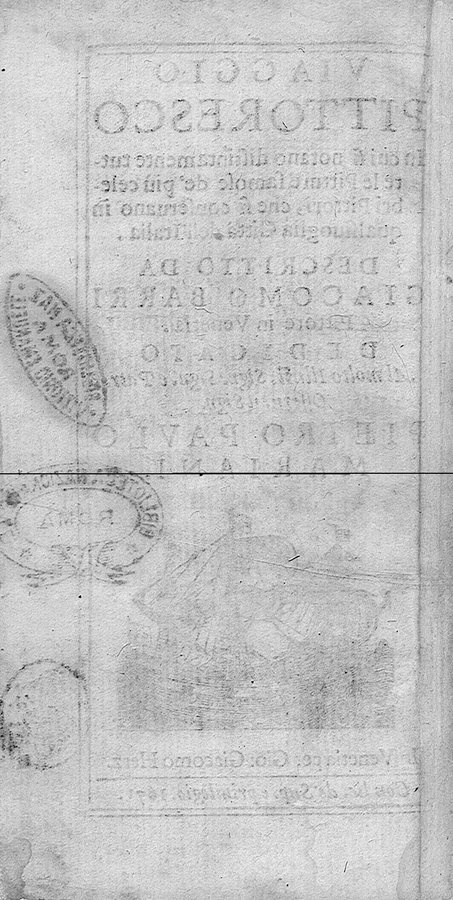 VIAGGIO
PITTORESCO
In cui ſi notano diſtintamente tut-
te le Pitture famoſe de' più cele-
bri Pittori, che ſi conſeruano in
qualſiuoglia Città dell'Italia.
DESCRITTO DA
GIACOMO BARRI
Pittore in Venetia
DEDICATO
Al molto Illuſt. Sign. Sig. e Patr.
Oſſeru. il Sign.
PIETRO PAVLO
MARIANI.
ROMA
In Venetia, per Gio: Giacomo Herz.
Con lic. de' Sup. e priuilegio. 1671.